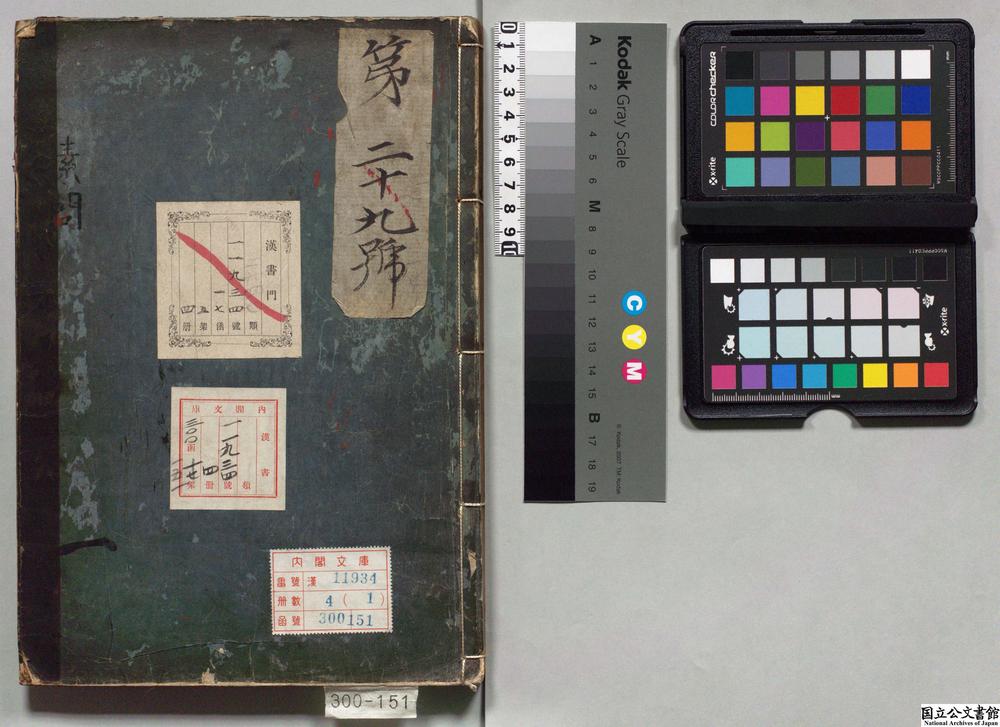 第二十九號
素問
漢書門
一一九三四
一七
五
四
類
號
函
架
册
内閣文庫
漢書
一一九三四
四
三〇〇
函
類
號
册
架
内閣文庫
番號 漢 11934
册數 4 ( 1 )
函號 300 151
300-151
0 1 2 3 4 5 6 7 8 9 10
Kodak Gray Scale
A 1 2 3 4 5 6 M 8 9 10 11 12 13 14 15 B 17 18 19
C Y M
© Kodak, 2007 TM: Kodak
colorchecker
x-rite
x-rite
国立公文書館
National Archives of Japan